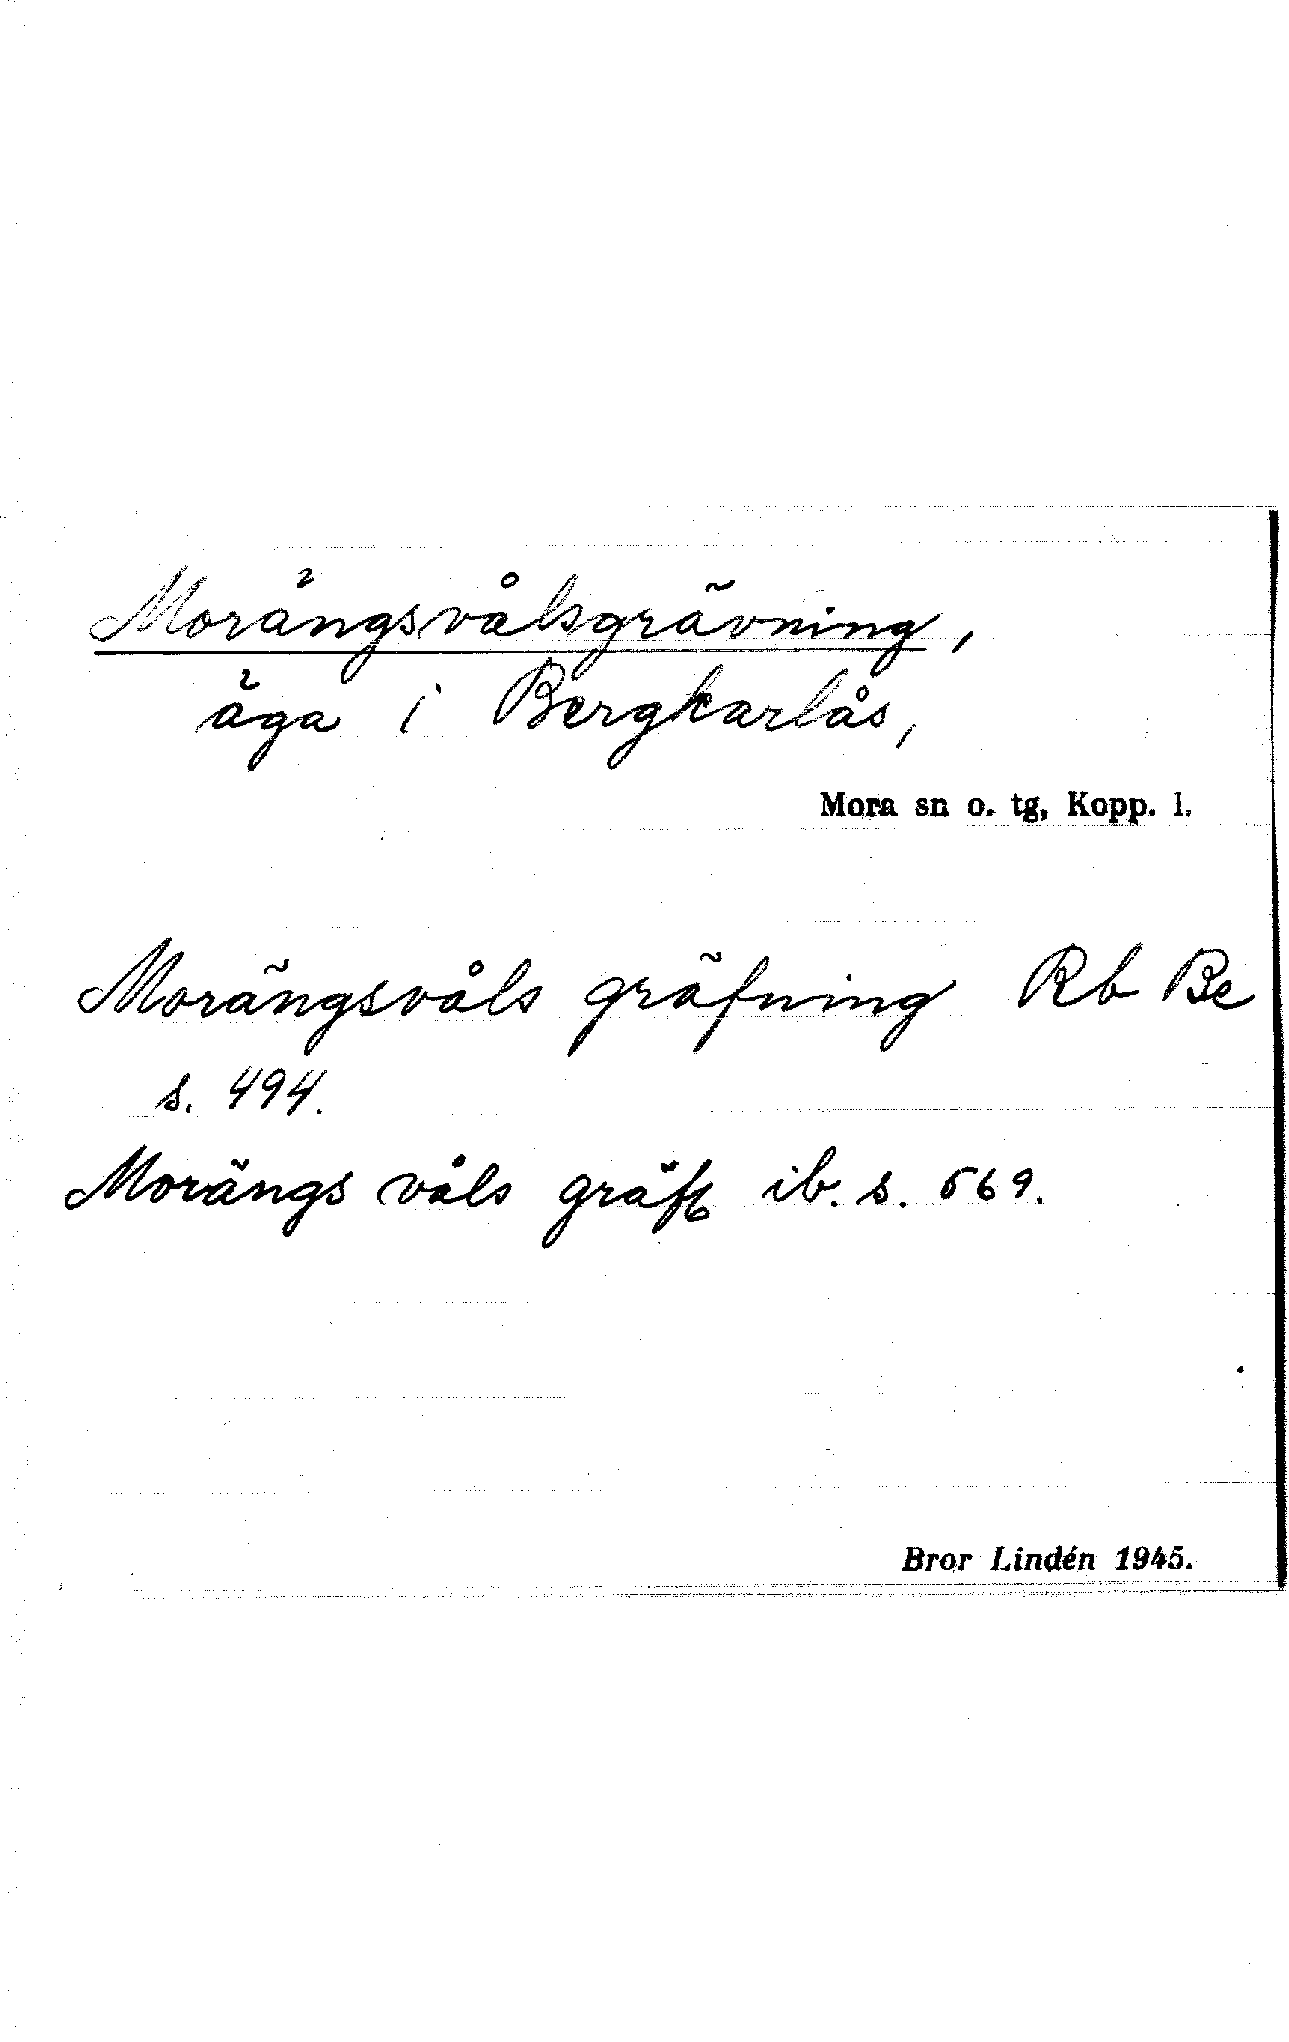 Morängsvålsgrävning,
äga i Bergkarlås,
Mora sn o. tg, Kopp. l.
Morängsvåls gräfning Rb Be
s. 494.
Morängs våls gräft ib. s. 569.
Bror Lindén 1945.